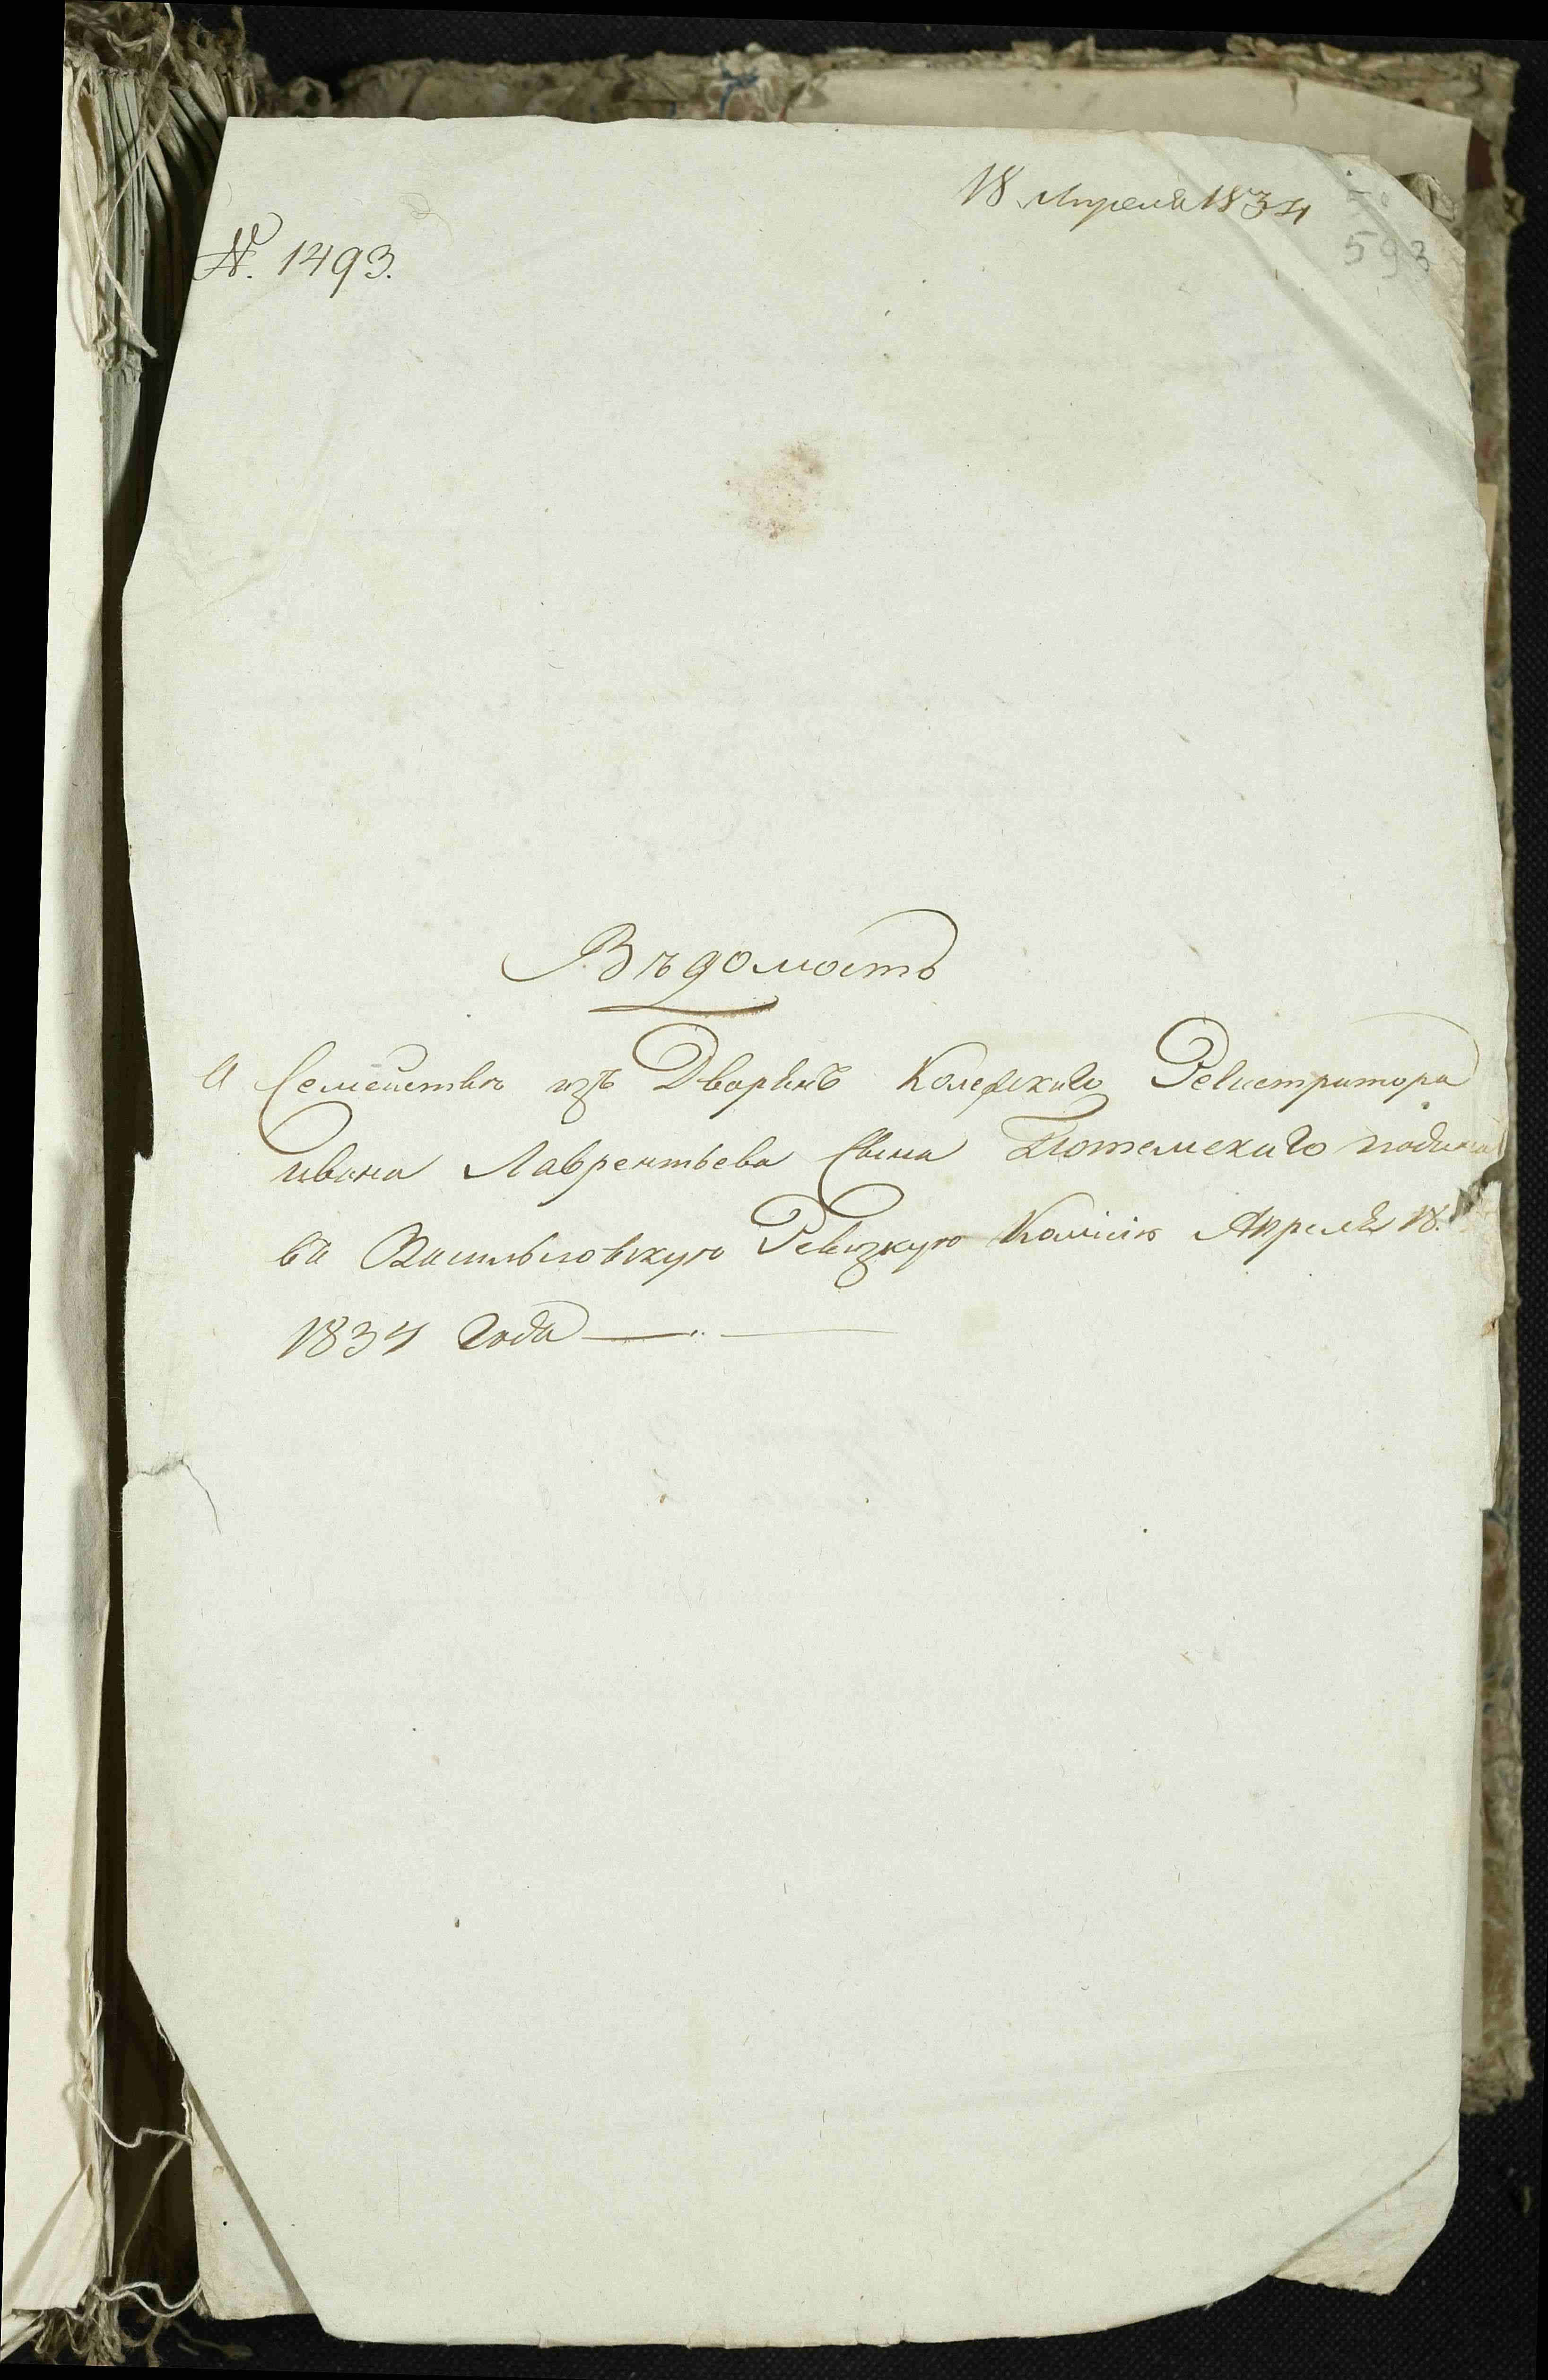 18 Апреля 1834
593
№. 1493.
Вѣдомость
О Семействѣ изъ Дворянъ Колежскаго Регистратора
ивана Лаврентьева Сына Потемскаго подана
въ Васильковскую Ревизкую Комисію Апреля 18.
1834 Года